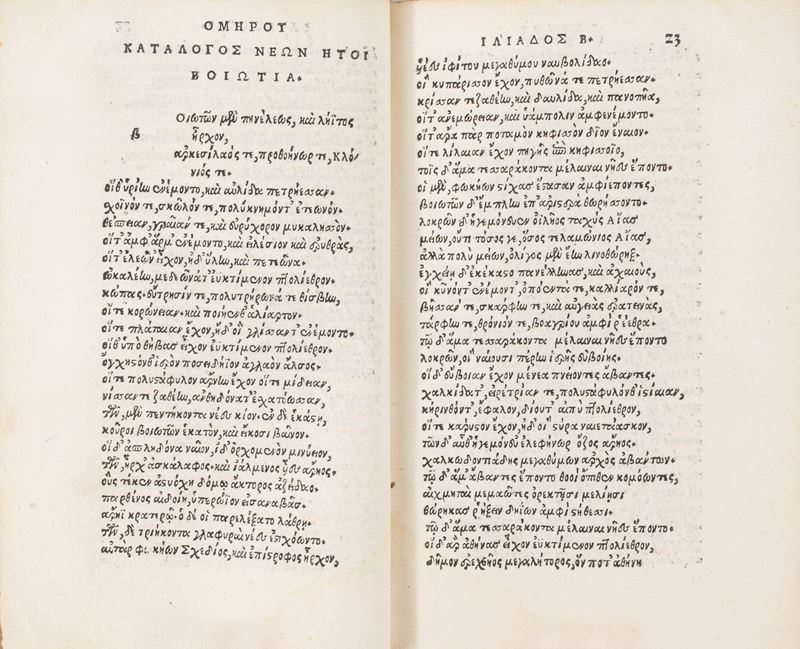 ΟΜΗΡΟΥ
ΚΑΤΑΛΟΓΟΣ ΝΕΩΝ ΗΤΟΙ
ΒΟΙΩΤΙΑ.
Οιωτῶν μὲν πηνέλεως, καὶ λήϊτος
β ἦρχον,
ἀρκεσίλαός τε, προθοήνωρ τε, Κλό,
νιός τε.
οἵθ᾽ ὑρίην ἐνέμοντο, καὶ αὐλίδα πετρήεσσαν.
σχοῖνόν τε, σκῶλόν τε, πολύκνημόντ᾽ ἐτεωνόν.
θέσπειαν, γραῖάν τε, καὶ εὐρύχορον μυκαλησσόν.
οἵτ᾽ ἀμφ᾽ ἅρμ᾽ ἐνέμοντο, καὶ εἰλέσιον καὶ ἐρυθράς,
οἵτ᾽ ἐλεῶν᾽ εἶχον, ἠδ᾽ ὕλην, καὶ πετεῶνα.
ὠκαλέην, μεδεῶνάτ᾽ ἐϋκτίμενον πτολίεθρον.
κώπας. εὔτρησίν τε, πολυτρήρωνά τε θίσβην,
οἵτε κορώνειαν. καὶ ποιήενθ᾽ ἁλίαρτον.
οἵτε πλάταιαν ἔχον, ἠδ᾽ οἳ γλίσαντ᾽ ἐνέμοντο.
οἵθ᾽ ὑποθήβας εἶχον ἐϋκτίμενον πτολίεθρον.
ὀγχηστόνθ᾽ ἱερὸν ποσειδήϊον ἀγλαὸν ἄλσος.
οἵτε πολυστάφυλον ἄρνην ἔχον οἵτε μίδειαν,
νίσσαν τε ζαθέην, ἀνθηδόνατ᾽ ἐσχατόωσαν,
τῶν, μὲν πεντήκοντα νέες κίον. ἐν δὲ ἑκάστῃ,
κοῦροι βοιωτῶν ἑκατὸν, καὶ εἴκοσι βαῖνον.
οἳ δ᾽ ἀσπληδόνα ναῖον, ἰδ᾽ ὀρχομενὸν μινύειον,
τῶν, ἦρχ᾽ ἀσκάλαφος. καὶ ἰάλμενος υἷες ἄρηος.
οὓς τέκεν ἀστυόχη δόμῳ ἄκτορος ἀζείδαο.
παρθένος αἰδοίη, ὑπερώϊον εἰσαναβᾶσα.
ἄρηϊ κρατερῷ. ὁ δέ οἱ παρελέξατο λάθρῃ.
τῶν, δὲ τριήκοντα γλαφυραὶ νέες ἐστιχόωντο.
αὐτὰρ φω κήων Σχεδίος, καὶ ἐπίστροφος ἦρχον,
ΙΛΙΑΔΟΣ Β. 23
υἷες ἰφίτου μεγαθύμου ναυβολίδαο.
οἳ κυπάρισσον ἔχον, πυθῶνά τε πετρήεσσαν.
κρίσσαν τε ζαθέην, καὶ δαυλίδα, καὶ πανοπῆα,
οἵτ᾽ ἀνεμώρειαν, καὶ ὑάμπολιν ἀμφενέμοντο.
οἵτ᾽ ἄρα πὰρ ποταμὸν κηφισσὸν δῖον ἔναιον.
οἵτε λίλαιαν ἔχον πηγῇς ἐπὶ κηφισσοῖο,
τοῖς δ᾽ ἅμα τεσσαράκοντα μέλαιναι νῆες ἕποντο.
οἱ μὲν, φωκήων στίχας ἵστασαν ἀμφιέποντες,
βοιωτῶν δ᾽ ἔμπλην ἐπ᾽ ἀριστερὰ θωρήσσοντο.
λοκρῶν δ᾽ ἡγεμόνευεν ὀϊλῆος ταχὺς Αἴας
μείων, οὔτι τόσος γε, ὅσος τελαμώνιος Αἴας,
ἀλλὰ πολὺ μείων, ὀλίγος μὲν ἔην λινοθώρηξ.
ἐγχείῃ δ᾽ ἐκέκαστο πανέλληνας, καὶ ἀχαιούς,
οἳ κῦνόντ᾽ ἐνέμοντ᾽, ὀπόεντά τε, καλλίαρόν τε,
βῆσσάν τε, σκάρφην τε, καὶ αὐγειὰς ἐρατεινὰς,
τάρφην τε, θρόνιόν τε, βοαγρίου ἀμφὶ ῥέεθρα.
τῷ δ᾽ ἅμα τεσσαράκοντα μέλαιναι νῆες ἕποντο
λοκρῶν, οἳ ναίουσι πέρην ἱερῆς εὐβοίης.
οἳ δ᾽ εὔβοιαν ἔχον μένεα πνείοντες ἄβαντες.
χαλκίδατ᾽, εἰρέτριάν τε, πολυστάφυλόνθ᾽ ἱστίαιαν,
κήρινθόντ᾽, ἔφαλον, δίουτ᾽ αἰπὺ πτολίεθρον,
οἵτε κάρυστον ἔχον, ἠδ᾽ οἳ στύρα ναιετάασκον,
τῶν δ᾽ αὖθ᾽ ἡγεμόνευ᾽ ἐλεφήνωρ ὄζος ἄρηος.
χαλκωδοντιάδης μεγαθύμων ἀρχὸς ἀβάντων.
τῷ δ᾽ ἅμ᾽ ἄβαντες ἕποντο θοοὶ ὄπιθεν κομόωντες,
αἰχμηταὶ μεμαῶτες ὀρεκτῇσι μελίῃσι
θώρηκας ῥήξειν δηΐων ἀμφὶ στήθεσσι.
τῷ δ᾽ ἅμα τεσσαράκοντα μέλαιναι νῆες ἕποντο.
οἳ δ᾽ ἄρ᾽ ἀθήνας εἶχον ἐϋκτίμενον πτολίεθρον,
δῆμον ἐρεχθῆος μεγαλήτορος, ὅν ποτ᾽ ἀθήνη